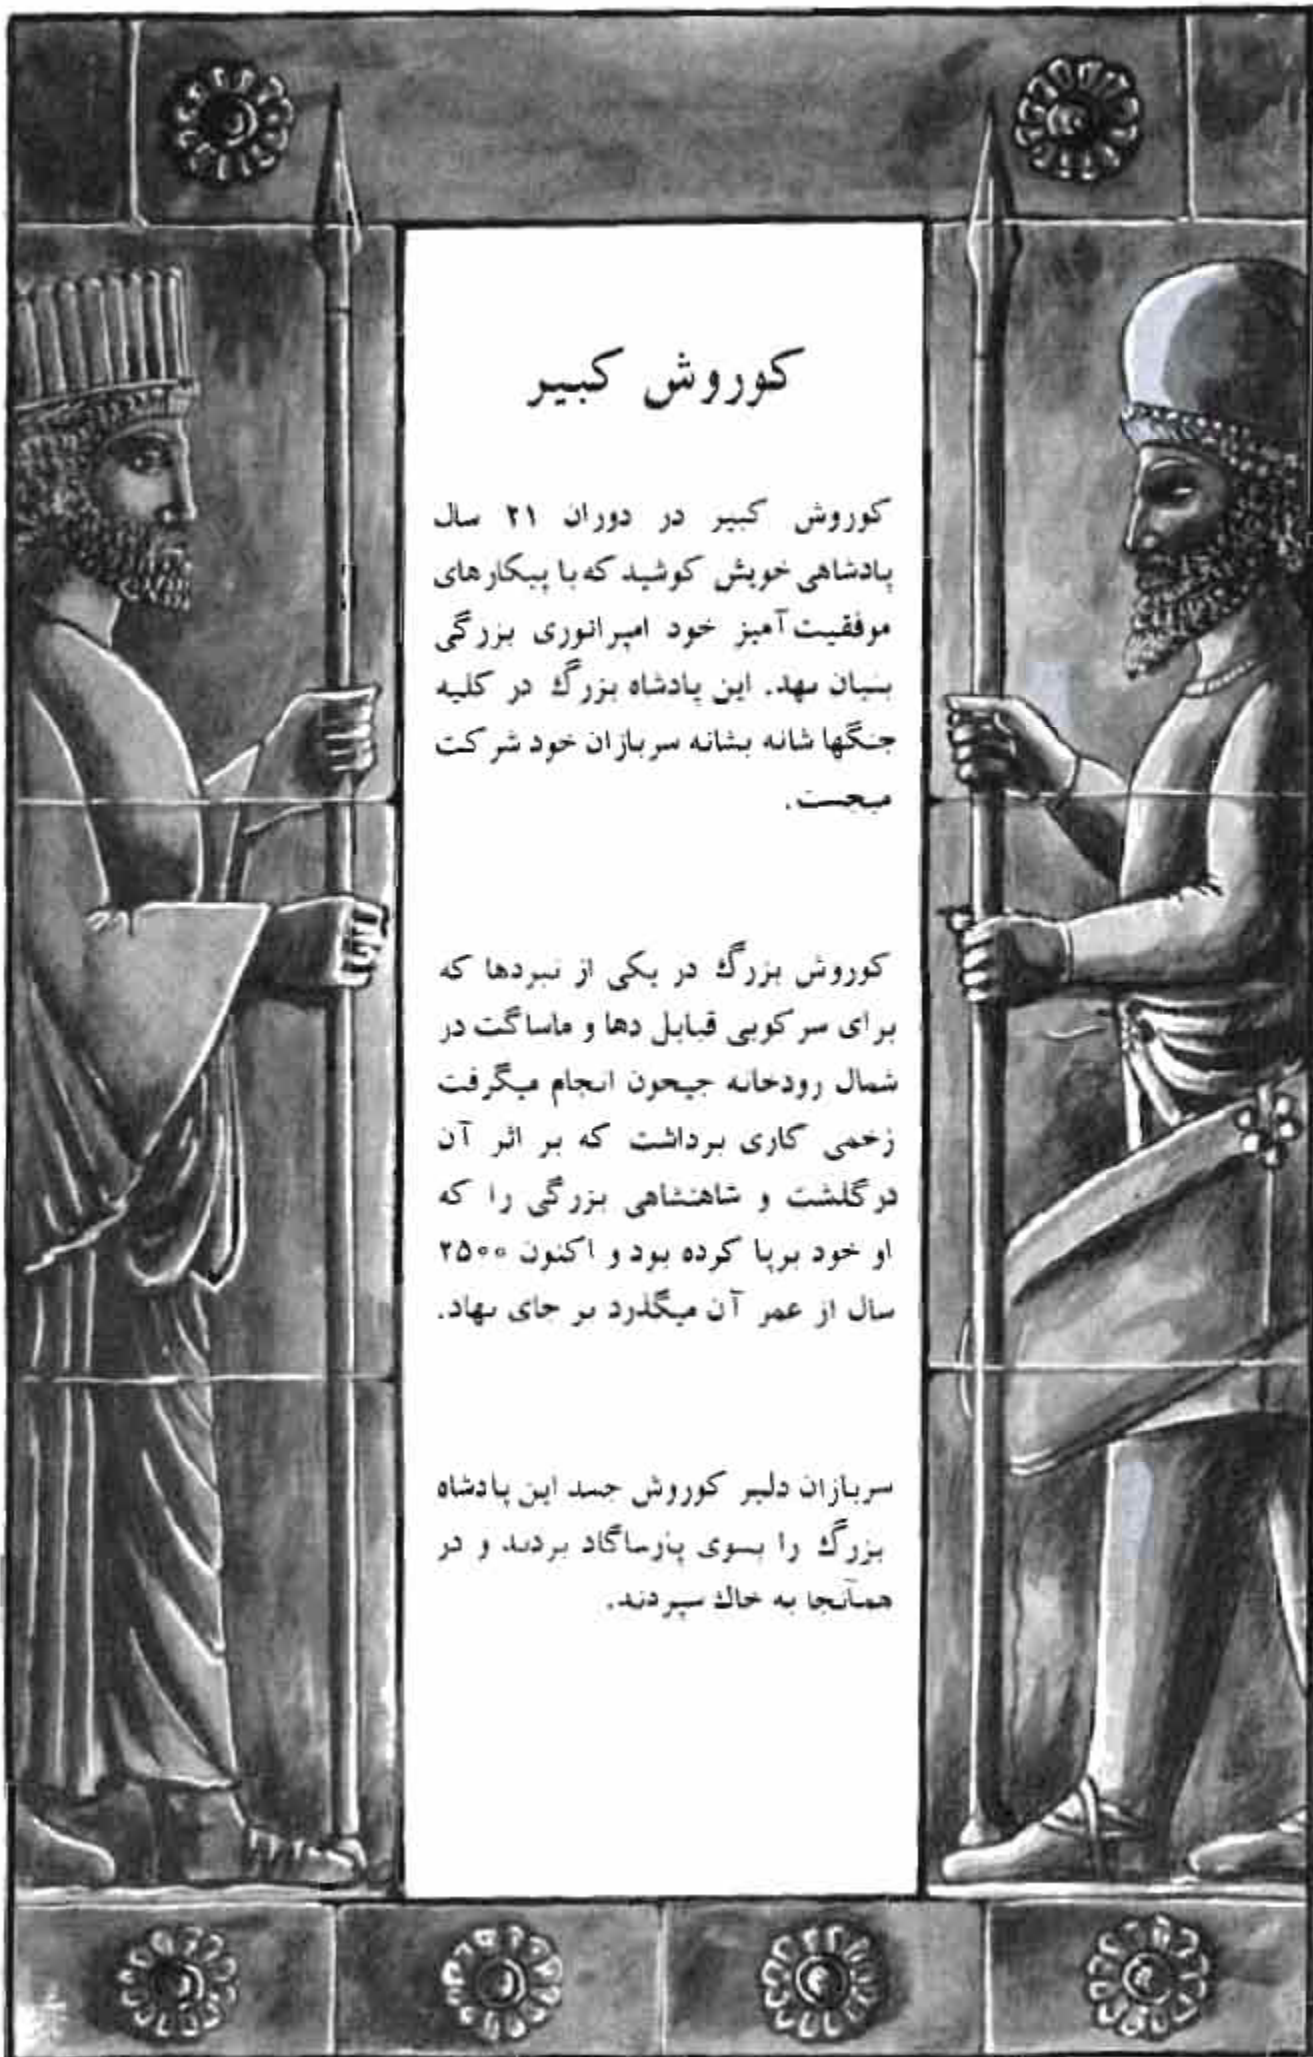 کوروش کبیر
کوروش کبیر در دوران ۲۱ سال
پادشاهی خویش کوشید که با پیکارهای
موفقیت‌آمیز خود امپراتوری بزرگی
بنیان نهد. این پادشاه بزرگ در کلیه
جنگها شانه بشانه سربازان خود شرکت
میجست.
کوروش بزرگ در یکی از نبردها که
برای سرکوبی قبایل دها و ماساگت در
شمال رودخانه جیحون انجام میگرفت
زخمی کاری برداشت که بر اثر آن
درگذشت و شاهنشاهی بزرگی را که
او خود برپا کرده بود و اکنون ۲۵۰۰
سال از عمر آن میگذرد بر جای نهاد.
سربازان دلیر کوروش جسد این پادشاه
بزرگ را بسوی پازساگاد بردند و در
همآنجا به خاک سپردند.